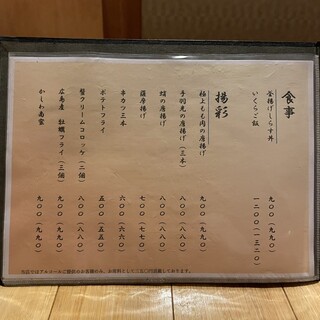 食事
釜揚げしらす丼 九〇〇(九九〇)
いくらご飯 一二〇〇(一三二〇)
揚彩
極上もも肉の唐揚げ 九〇〇(九九〇)
手羽先の唐揚げ(三本) 八〇〇(八八〇)
蛸の唐揚げ 八〇〇(八八〇)
薩摩揚げ 七〇〇(七七〇)
串カツ三本 六〇〇(六六〇)
ポテトフライ 五〇〇(五五〇)
蟹クリームコロッケ(二個) 八〇〇(八八〇)
広島産 牡蠣フライ(三個) 九〇〇(九九〇)
かしわ南蛮 九〇〇(九九〇)